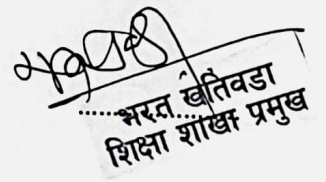 भरत खतिवडा
शिक्षा शाखा प्रमुख